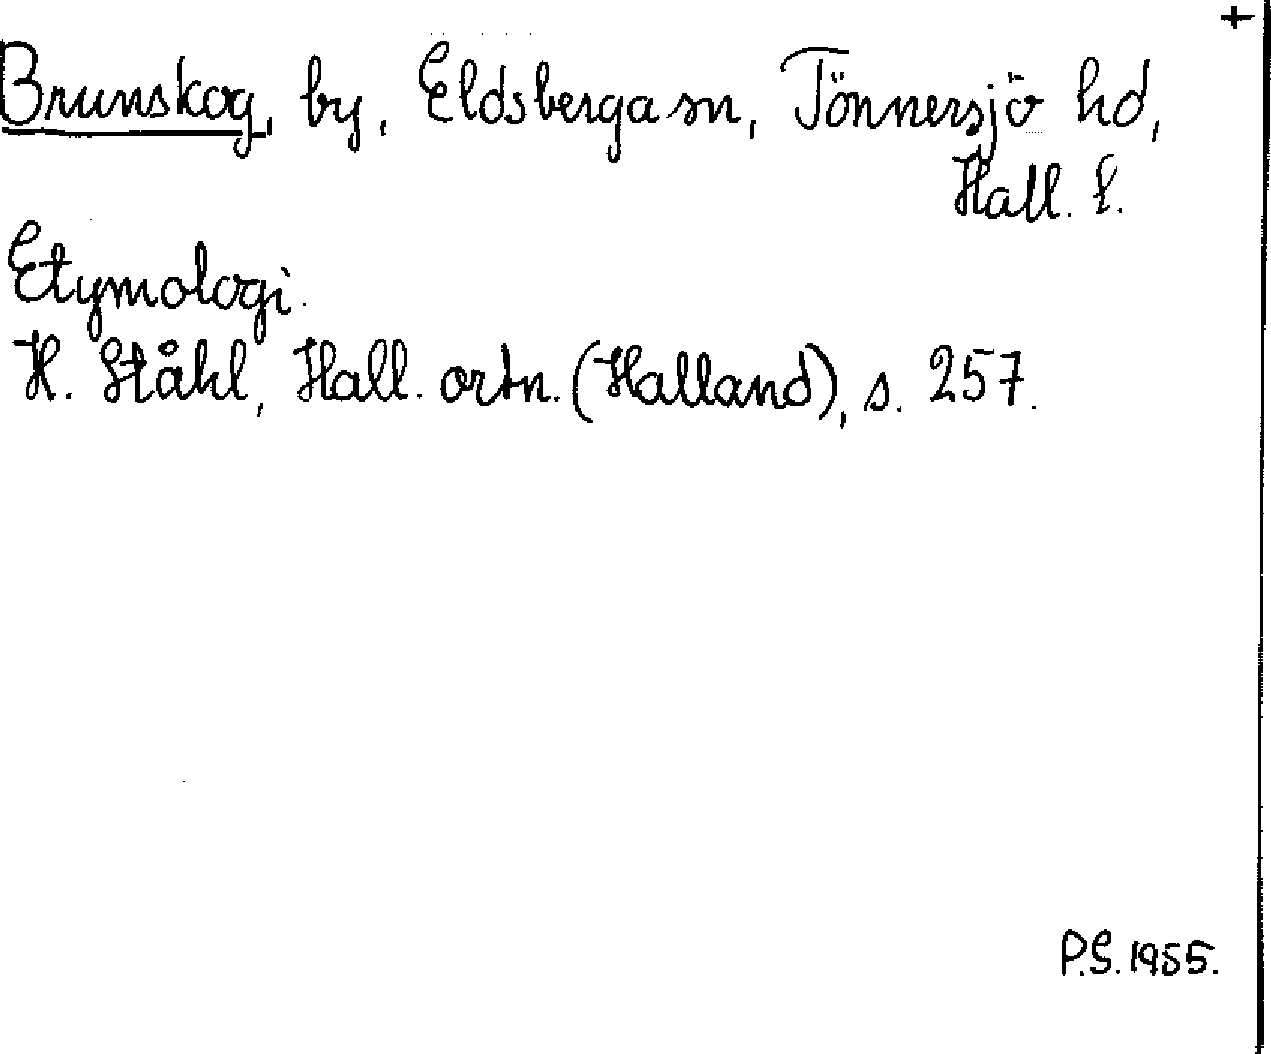 +
Brunskog, by, Eldsberga sn, Tönnersjö hd,
Hall. l.
Etymologi.
H. Ståhl, Hall. ortn. (Halland), s. 257.
P.S. 1955.